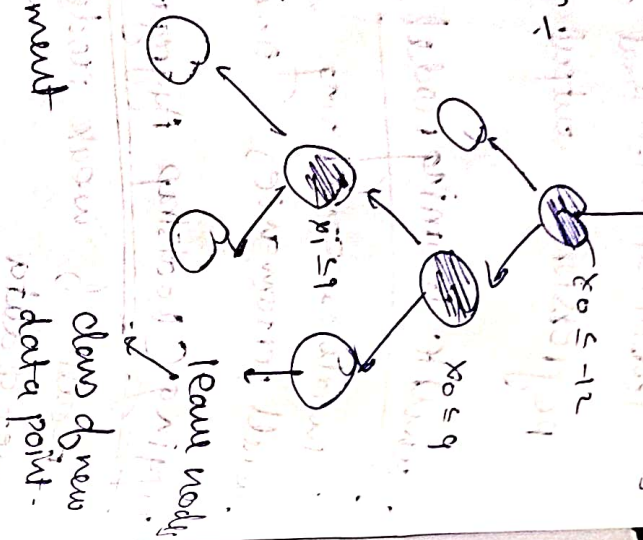 x0 ≤ -12
x0 ≤ 9
x1 ≤ 9
leave node
class of new
data point.
ment